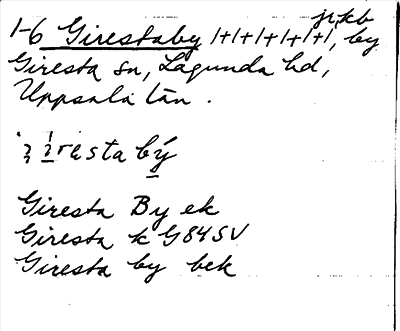 jrkb
1-6 Girestaby 1+1+1+1+1+1, by
Giresta sn, Lagunda hd,
Uppsala län.
resta bý
Giresta By ek
Giresta k G84SV
Giresta by bek